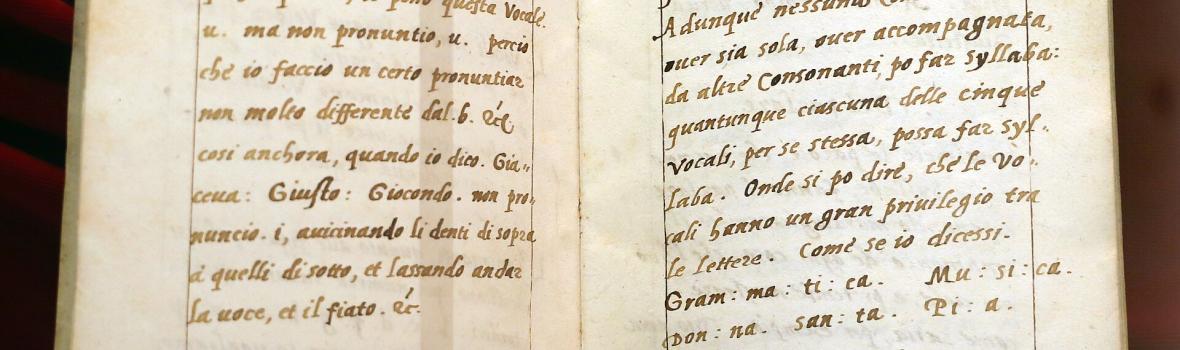 questa vocale.
u. ma non pronuntio, u. percio
che io faccio un certo pronuntiar
non molto differente dal. b. &c
cosi anchora, quando io dico. Gia„
ceua: Giusto: Giocondo. non pro„
nuncio. i, auicinando li denti di sopra
à quelli di sotto, et lassando andar
la uoce, et il fiato. &c.
Adunque nessuna
ouer sia sola, ouer accompagnata,
da altre Consonanti, po far Syllaba:
quantunque ciascuna delle cinque
Vocali, per se stessa, possa far Syl„
laba. Onde si po dire, che le Vo„
cali hanno un gran priuilegio tra
le lettere. Come se io dicessi.
Gram: ma: ti: ca. Mu: si: ca.
Don: na. San: ta. Pi: a.